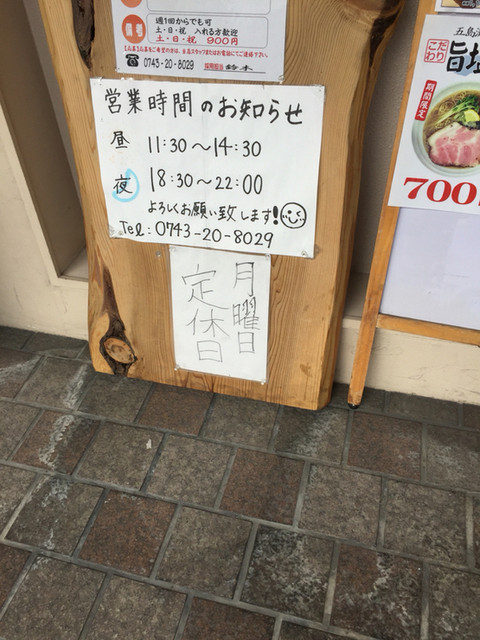 備考
週1回からでも可
土・日・祝 入れる方歓迎
土・日・祝 900円
☎ 0743-20-8029 採用担当 鈴木
営業時間のお知らせ
昼 11:30～14:30
夜 18:30～22:00
よろしくお願い致します!
Tel:0743-20-8029
月曜日
定休日
五島
こだわり
旨塩
期間限定
700